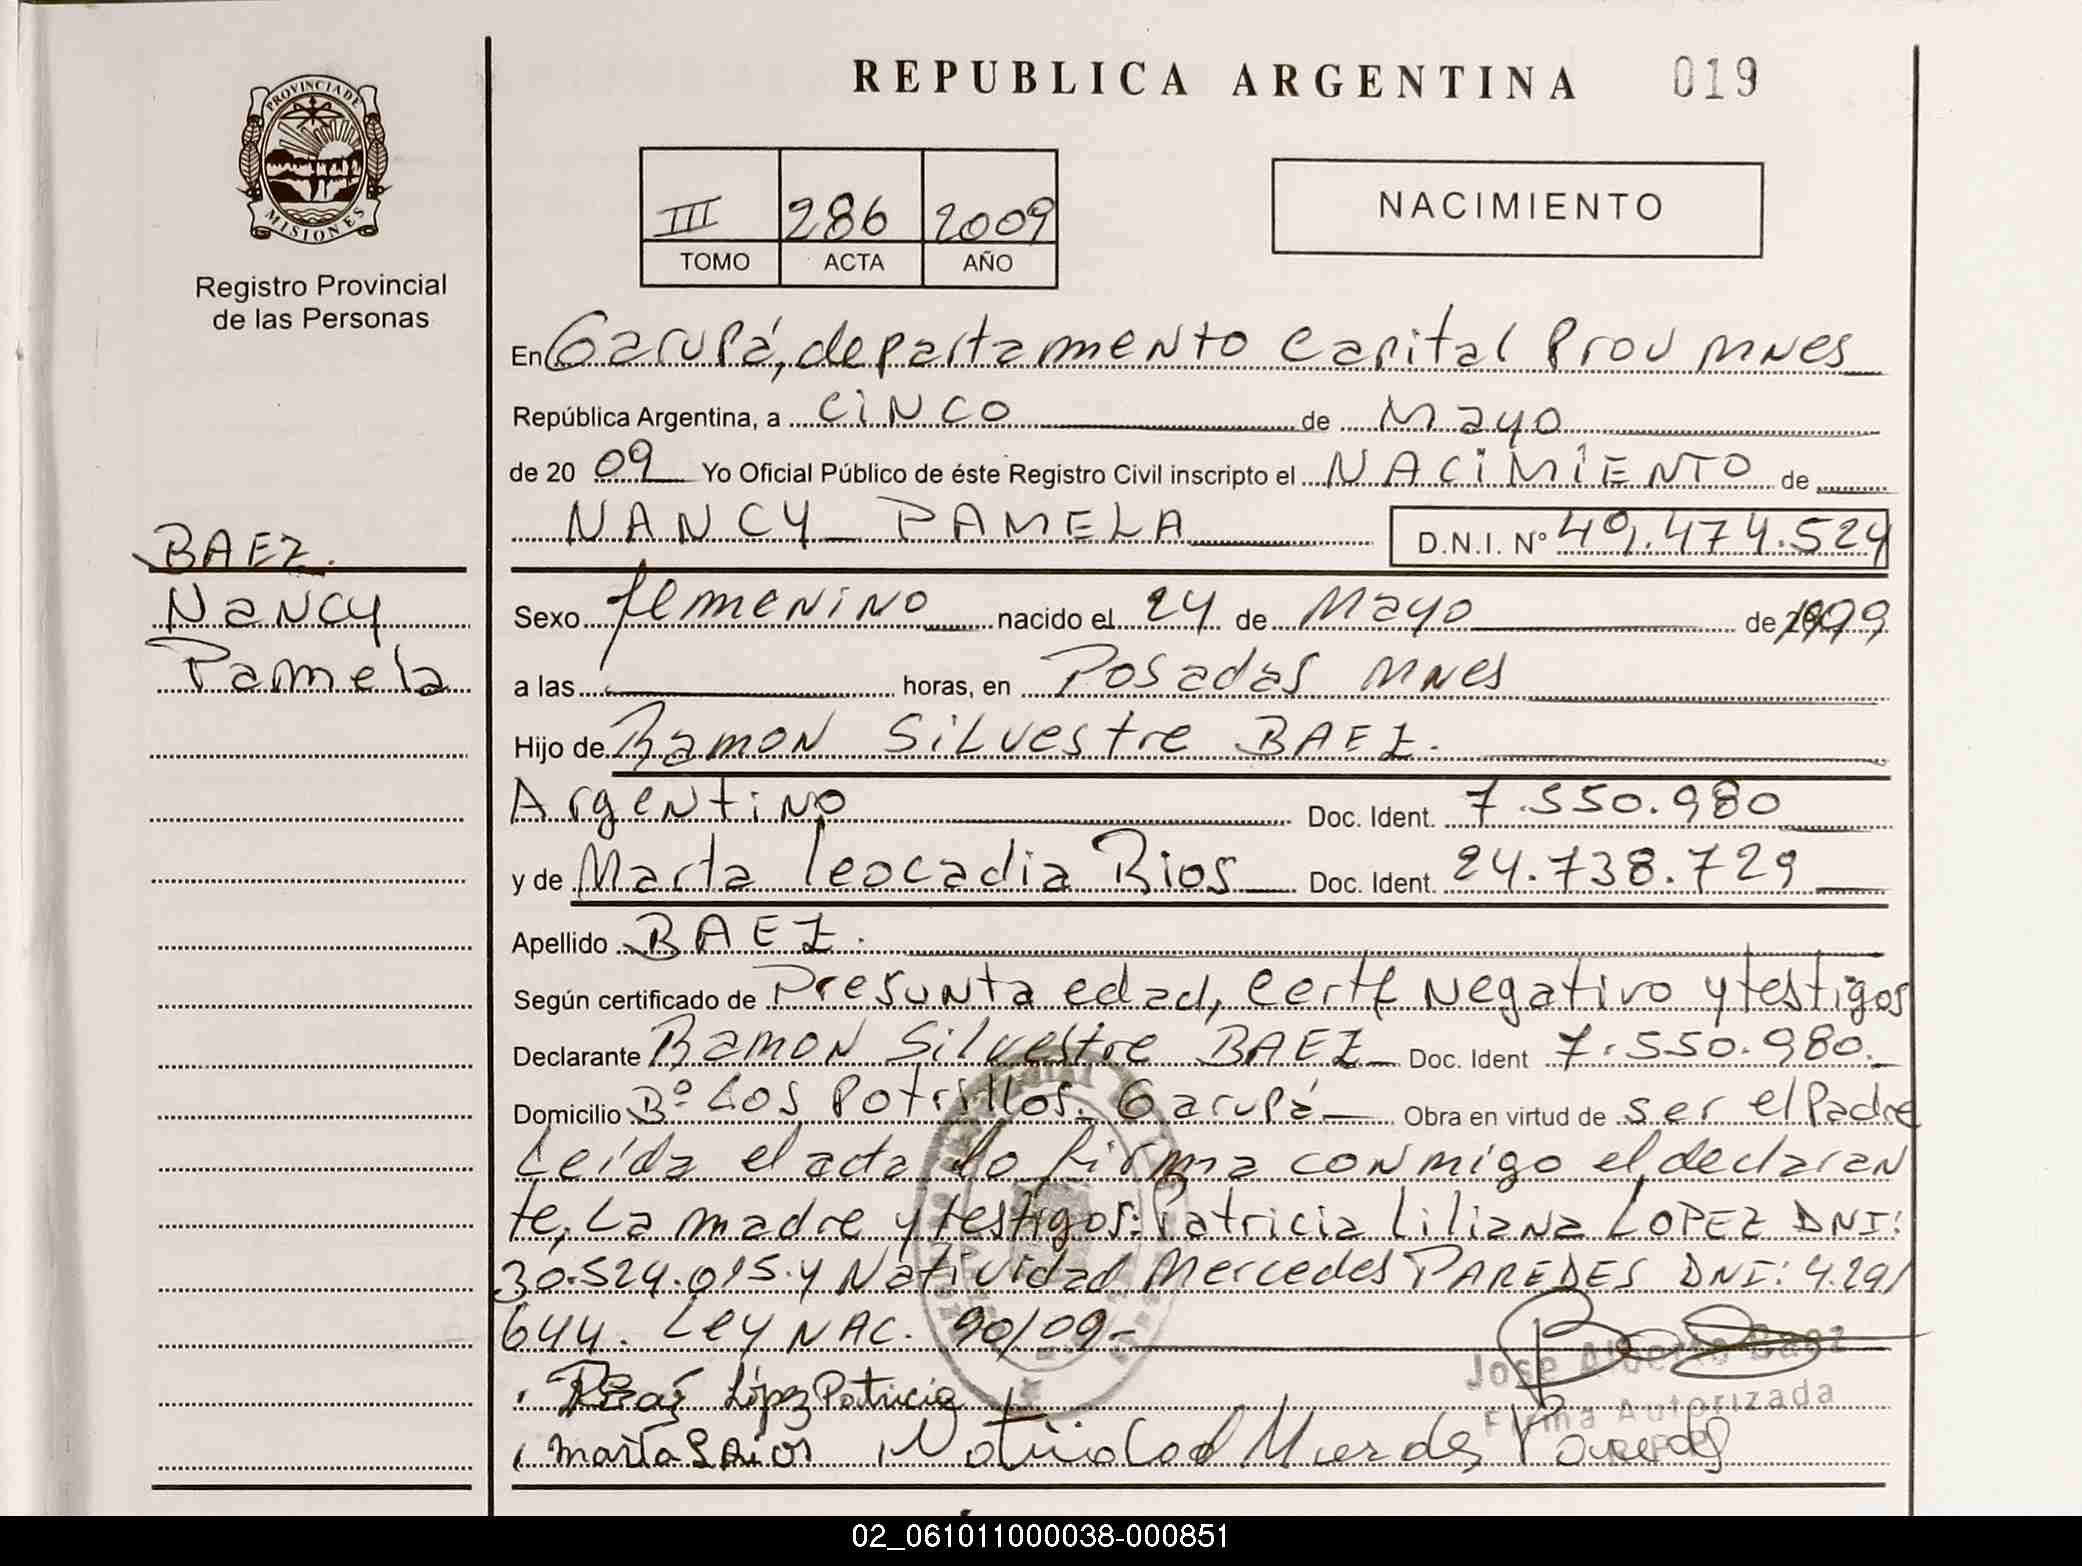 REPUBLICA ARGENTINA 019
PROVINCIA DE
MISIONES
Registro Provincial
de las Personas
III 286 2009
TOMO ACTA AÑO
NACIMIENTO
En Garupá, departamento Capital Prov Mnes
República Argentina, a cinco de Mayo
de 20 09 Yo Oficial Público de éste Registro Civil inscripto el NACIMIENTO de
NANCY PAMELA D.N.I. Nº 49.474.524
BAEZ.
Nancy
Pamela
Sexo femenino nacido el 24 de Mayo de 1999
a las horas, en Posadas Mnes
Hijo de Ramon Silvestre BAEZ.
Argentino Doc. Ident. 7.550.980
y de Marta Leocadia Rios Doc. Ident. 24.738.729
Apellido BAEZ.
Según certificado de Presunta edad, Certf Negativo y testigos
Declarante Ramon Silvestre BAEZ Doc. Ident 7.550.980.
Domicilio Bº Los Potrillos. Garupá Obra en virtud de ser el Padre
Leída el acta lo firma conmigo el declaran
te, La madre y testigos: Patricia Liliana LOPEZ DNI:
30.524.015.y Natividad Mercedes PAREDES DNI: 4.291
644. Ley NAC. 90/09-
Jose Alberto Baez
Firma Autorizada
López Patricia
Natividad Mercedes Paredes
02_061011000038-000851